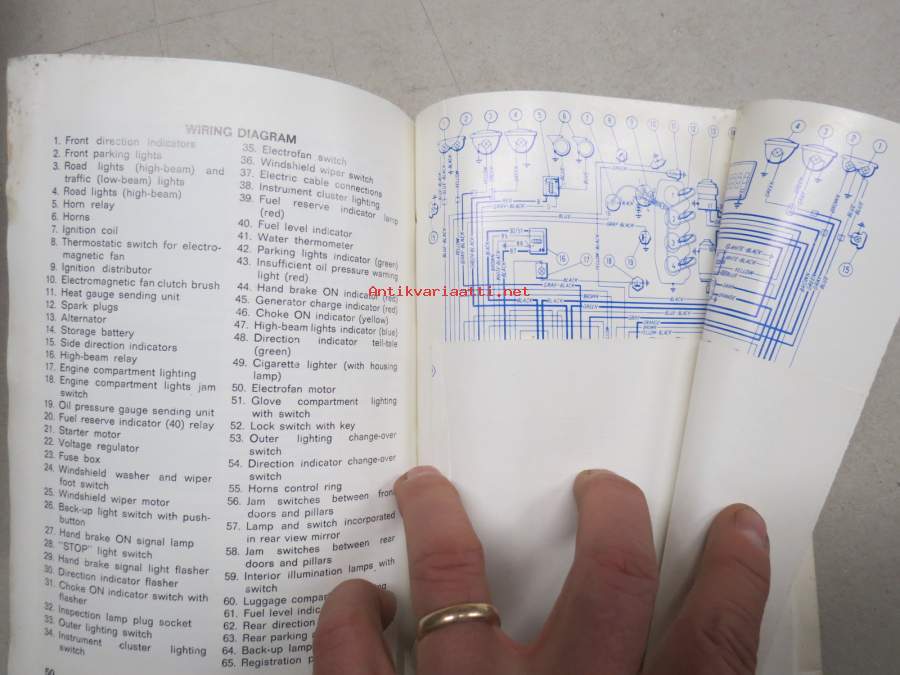 WIRING DIAGRAM
1. Front direction indicators
2. Front parking lights
3. Road lights (high-beam) and
traffic (low-beam) lights
4. Road lights (high-beam)
5. Horn relay
6. Horns
7. Ignition coil
8. Thermostatic switch for electro-
magnetic fan
9. Ignition distributor
10. Electromagnetic fan clutch brush
11. Heat gauge sending unit
12. Spark plugs
13. Alternator
14. Storage battery
15. Side direction indicators
16. High-beam relay
17. Engine compartment lighting
18. Engine compartment lights jam
switch
19. Oil pressure gauge sending unit
20. Fuel reserve indicator (40) relay
21. Starter motor
22. Voltage regulator
23. Fuse box
24. Windshield washer and wiper
foot switch
25. Windshield wiper motor
26. Back-up light switch with push-
button
27. Hand brake ON signal lamp
28. "STOP" light switch
29. Hand brake signal light flasher
30. Direction indicator flasher
31. Choke ON indicator switch with
flasher
32. Inspection lamp plug socket
33. Outer lighting switch
34. Instrument cluster lighting
switch
35. Electrofan switch
36. Windshield wiper switch
37. Electric cable connections
38. Instrument cluster lighting
39. Fuel reserve indicator lamp
(red)
40. Fuel level indicator
41. Water thermometer
42. Parking lights indicator (green)
43. Insufficient oil pressure warning
light (red)
44. Hand brake ON indicator (red)
45. Generator charge indicator (red)
46. Choke ON indicator (yellow)
47. High-beam lights indicator (blue)
48. Direction indicator tell-tale
(green)
49. Cigarette lighter (with housing
lamp)
50. Electrofan motor
51. Glove compartment lighting
with switch
52. Lock switch with key
53. Outer lighting change-over
switch
54. Direction indicator change-over
switch
55. Horns control ring
56. Jam switches between front
doors and pillars
57. Lamp and switch incorporated
in rear view mirror
58. Jam switches between rear
doors and pillars
59. Interior illumination lamps with
switch
60. Luggage
61. Fuel level
62. Rear
63. Rear parking
64. Back-up
65. Registration
Antikvariaatti.net
Antikvariaatti.net
1 2 3 4 5 6 7 8 9 10 11 12 13
4 3 2 1
RED
GRAY-BLACK
BLUE
GRAY BLACK
30/51
16 17 18 15
BLACK
GRAY-BLACK
BROWN
GREEN
BLUE BLACK
GREY
ORANGE
BROWN
YELLOW BLACK